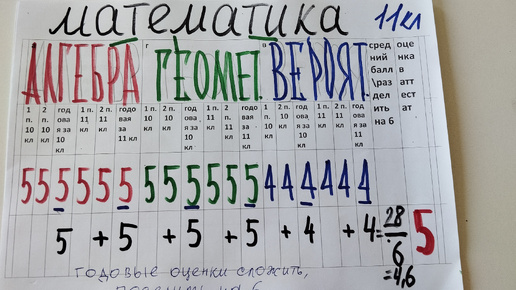 математика 11кл
АЛГЕБРА ГЕОМЕТ. ВЕРОЯТ.
сред ний балл \раз дел ить на 6
оце нка в атт ест ат
1 п. 10 кл 2 п. 10 кл год ова я за 10 кл 1 п. 11 кл 2 п. 11 кл годо вая за 11 кл 1 п. 10 кл 2 п. 10 кл год ова я за 10 кл 1 п. 11 кл 2 п. 11 кл год ова я за 11 кл 1 п. 10 кл 2 п. 10 кл год ова я за 10 кл 1 п. 11 кл 2 п. 11 кл годо вая за 11 кл
5 5 5 5 5 5 5 5 5 5 5 5 4 4 4 4 4 4
5 + 5 + 5 + 5 + 4 + 4 = 28 ÷ 6 = 4,6 5
годовые оценки сложить,
на 6